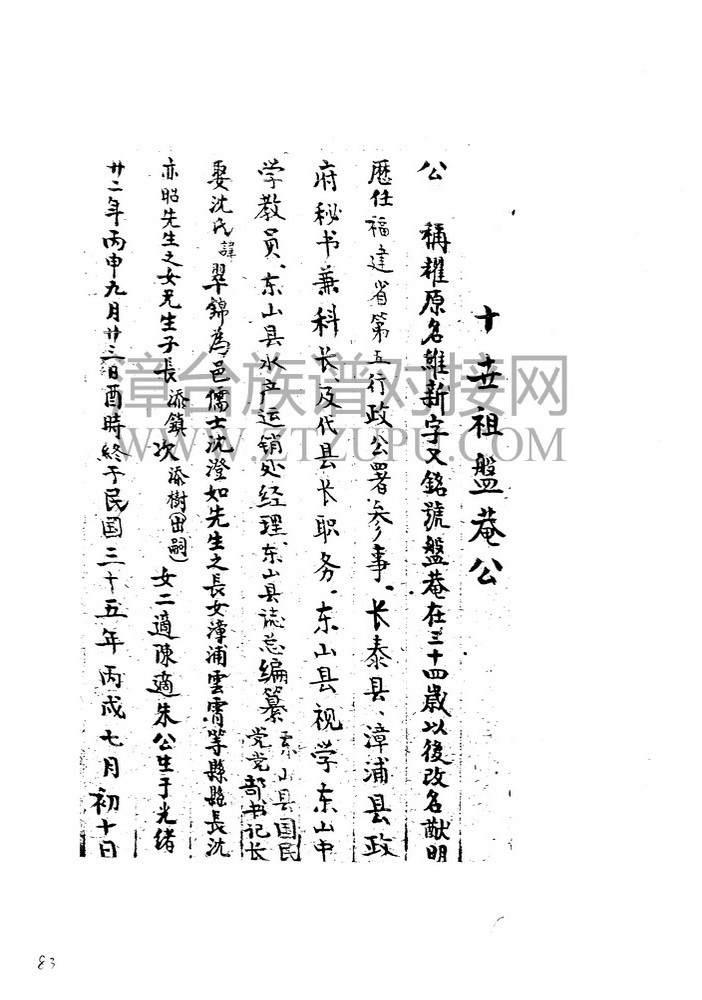 十世祖盤菴公
公 稱耀原名維新字又銘號盤菴在三十四歲以後改名猷明
歷任福建省第五行政公署参事、长泰县、漳浦县政
府秘书兼科长、及代县长职务、东山县视学东山中
学教员、东山县水产运销处经理、东山县誌总编纂 东山县国民党党部书记长
娶沈氏諱翠錦為邑儒士沈澄如先生之長女漳浦雲霄等縣縣長沈
亦昭先生之女兄生子長添鎮次添樹(出嗣)女二適陳適朱公生于光緒
廿二年丙申九月廿三日酉時終于民国三十五年丙戌七月初十日
漳台族谱对接网
WWW.ZTZUPU.COM
83